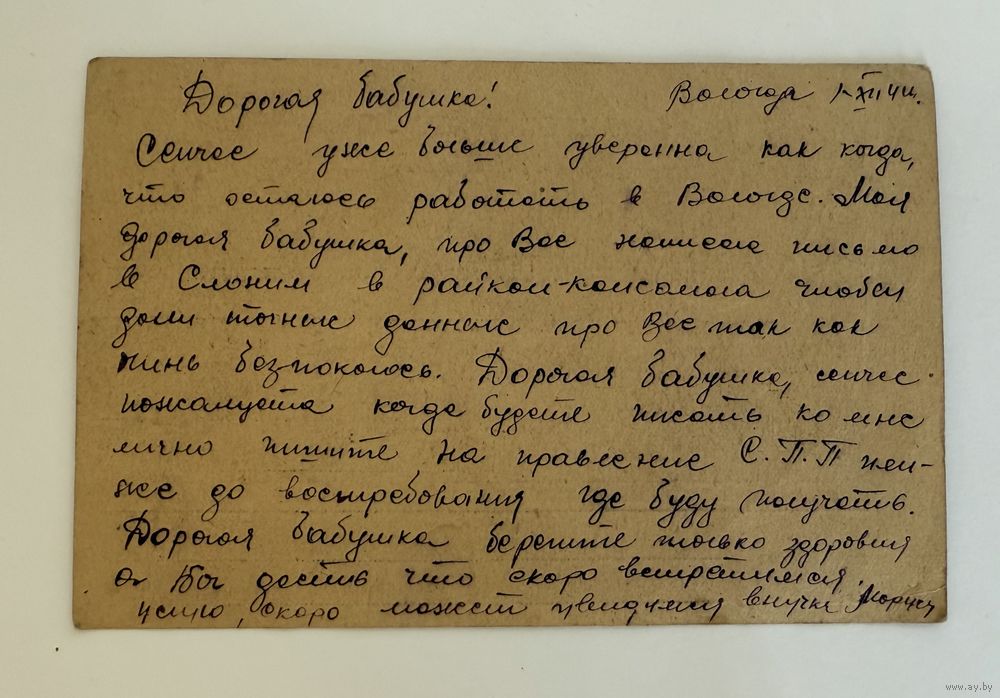 Дорогая бабушка! Вологда 1-XII 44.
Сейчас уже больше уверенна как когда,
что остаюсь работать в Вологде. Моя
дорогая бабушка, про Вас написала письмо
в Слоним в райком-комсомола чтобы
дали точные данные про Вас так как
безпокоюсь. Дорогая бабушка, сейчас
пожалуста когда будете писать ко мне
лично пишите на правление С.П.П
до востребования где буду получать.
Дорогая бабушка берегите только здоровия
а Бог даст что скоро встретимся.
целую, скоро может увидимся внучка Маруся
www.ay.by